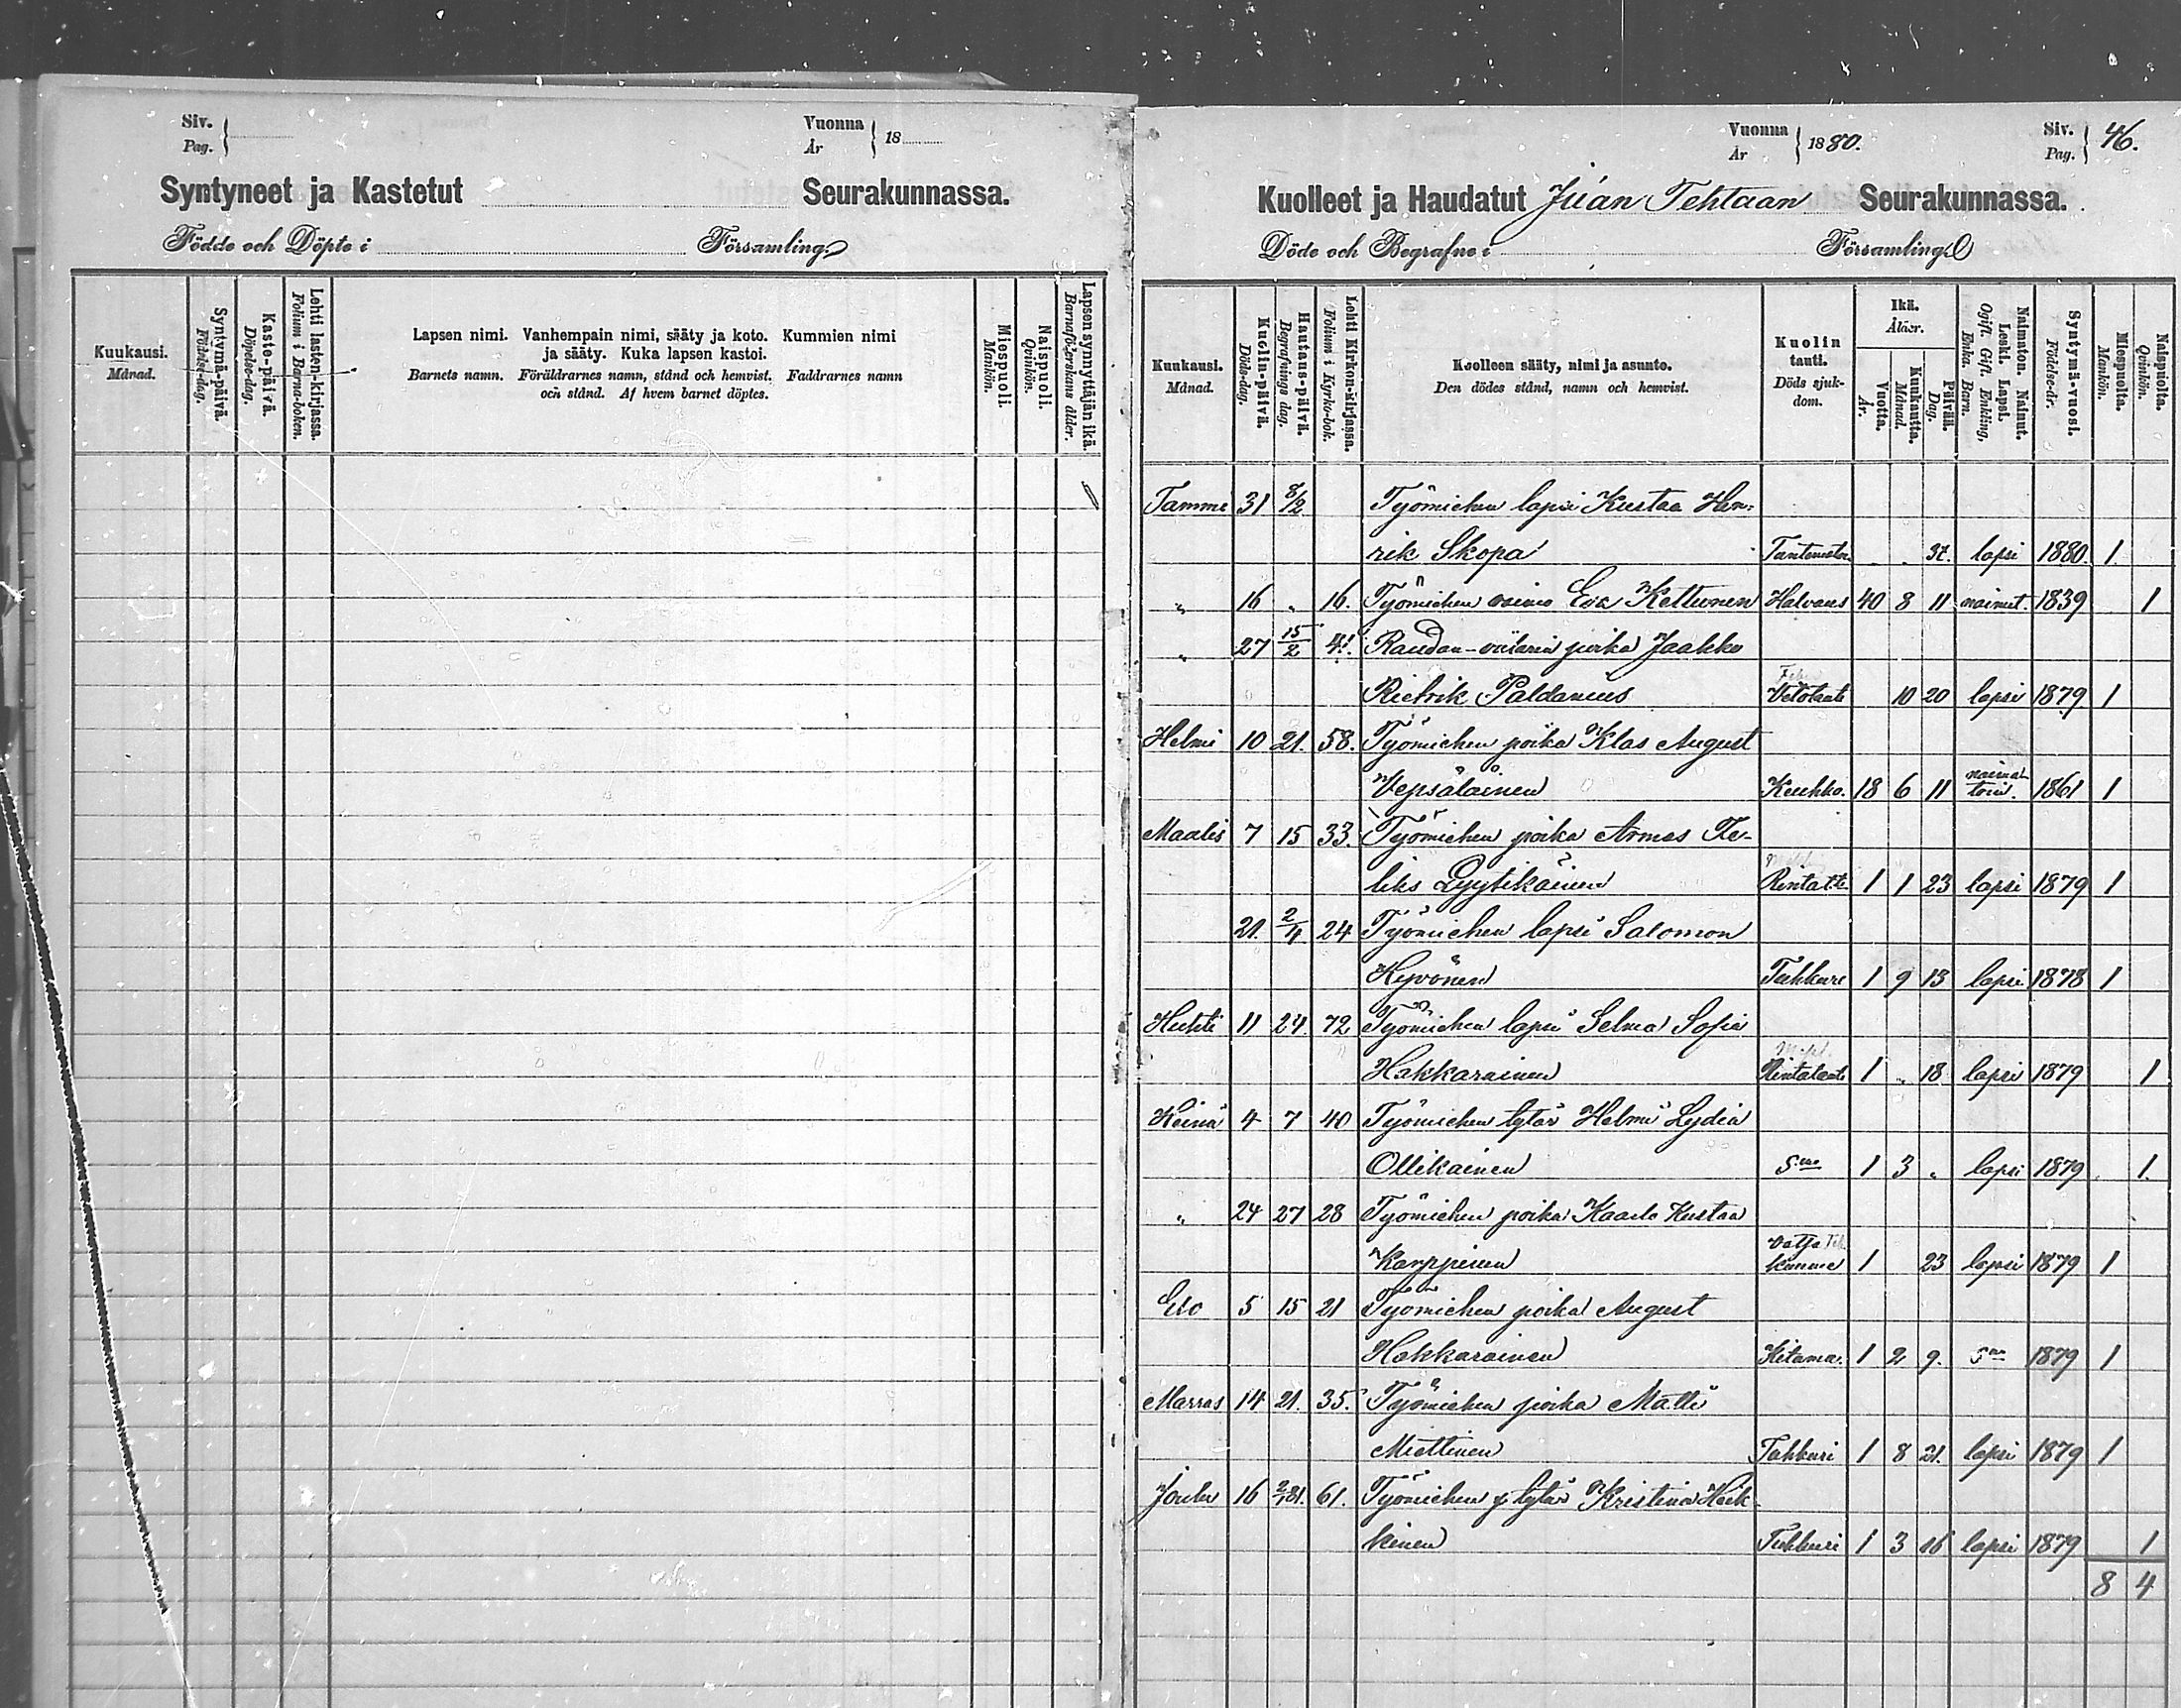 Siv.
Pag.
Vuonna
År
18
Syntyneet ja Kastetut Seurakunnassa.
Födde och Döpte i Församling
Kuukausi.
Månad.
Syntymä-päivä.
Födelse-dag.
Kaste-päivä.
Döpelse-dag.
Lehti lasten-kirjassa.
Folium i Barna-boken.
Lapsen nimi. Vanhempain nimi, sääty ja koto. Kummien nimi
ja sääty. Kuka lapsen kastoi.
Barnets namn. Föräldrarnes namn, stånd och hemvist. Faddrarnes namn
och stånd. Af hvem barnet döptes.
Miespuoli.
Mankön.
Naispuoli.
Qvinkön.
Lapsen synnyttäjän ikä.
Barnaföderskans ålder.
Vuonna
År
1880.
Siv.
Pag.
46.
Kuolleet ja Haudatut Juan Tehtaan Seurakunnassa.
Döde och Begrafne i Församling
Kuukausi.
Månad.
Kuolin-päivä.
Döds-dag.
Hautaus-päivä.
Begrafnings dag.
Lehti Kirkon-kirjassa.
Folium i Kyrko-bok.
Kuolleen sääty, nimi ja asunto.
Den dödes stånd, namn och hemvist.
Kuolin
tauti.
Döds sjuk-
dom.
Ikä.
Ålder.
Vuotta.
År.
Kuukautta.
Månad.
Päivää.
Dag.
Naimaton. Nainut.
Leski. Lapsi.
Ogift. Gift. Enkling,
Enka. Barn.
Syntymä-vuosi.
Födelse-år.
Miespuolta.
Mankön.
Naispuolta.
Qvinkön.
Tamme 31 8/2 Työmiehen lapsi Kustaa Hen-
rik Skopa Tuntematon 37. lapsi 1880. 1.
" 16 " 16. Työmiehen vaimo Eva Kettunen Halvaus 40 8 11 nainut. 1839 1
" 27 15/2 4. Raudan-viilarin poika Jaakko
Rietrik Paldanius Vetotauti 10 20 lapsi 1879 1
Helmi 10 21. 58. Työmiehen poika Klas August
Vepsäläinen Keuhko. 18 6 11 naimatoin. 1861 1
Maalis 7 15 33. Työmiehen poika Armas Fe-
liks Lyytikäinen Rintat. 1 1 23 lapsi 1879 1
21. 2/4 24 Työmiehen lapsi Salomon
Hyvönen Tuhkuri 1 9 13 lapsi 1878 1
Huhti 11 24. 72 Työmiehen lapsi Selma Sofia
Hakkarainen Rintatauti 1 " 18 lapsi 1879 1
Heinä 4 7 40 Työmiehen tytär Helmi Lydia
Ollikainen 1 3 " lapsi 1879 1.
" 24 27 28 Työmiehen poika Kaarlo Kustaa
Karppinen Vatsa 1 23 lapsi 1879 1
Elo 5 15 21 Työmiehen poika August
Hakkarainen Kitama. 1 2 9. 1879 1
Marras 14 21. 35. Työmiehen poika Matti
Miettinen Tuhkuri 1 8 21. lapsi 1879 1
Joulu 16 2/1 81. 61. Työmiehen tytär Kristina Heik-
kinen Tuhkuri 1 3 16 lapsi 1879 1
8 4